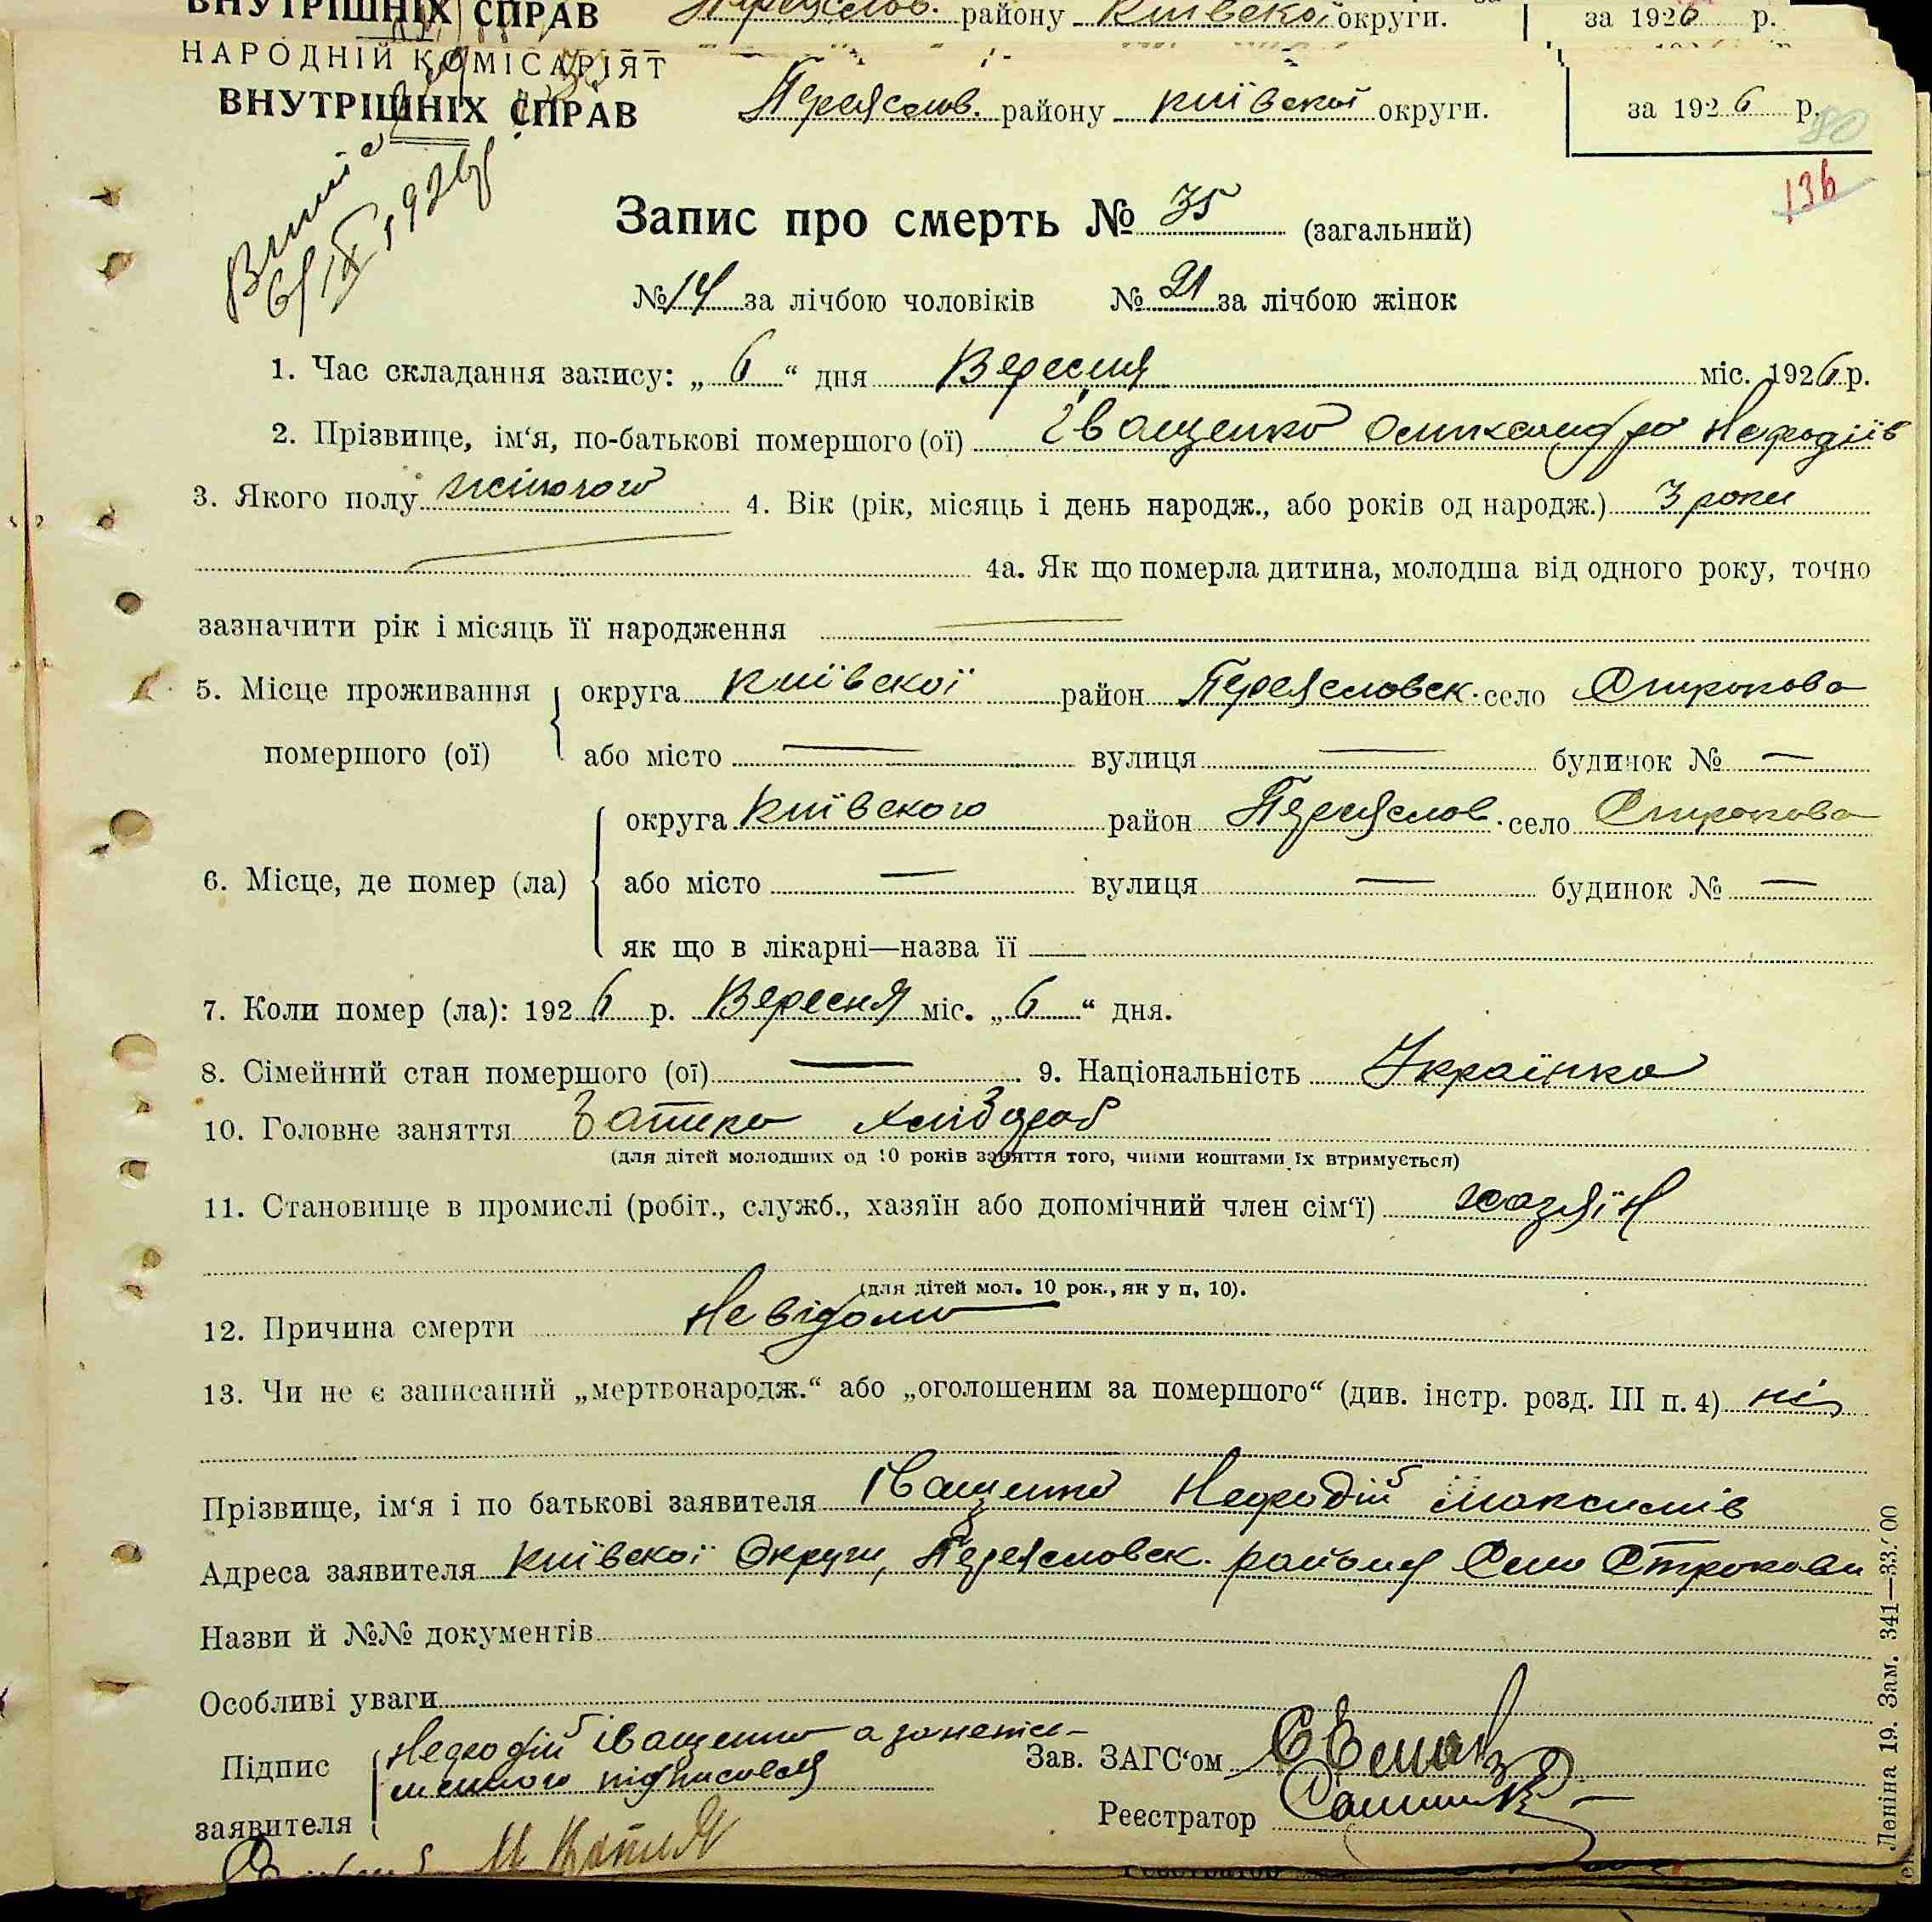 ВНУТРІШНІХ СПРАВ району Київскої округи. за 1926 р.
НАРОДНІЙ КОМІСАРІЯТ
ВНУТРІШНІХ СПРАВ Переяслов. району Київскої округи. за 1926 р.
80
136
6/IX 1926р
Запис про смерть № 35 (загальний)
№ 14 за лічбою чоловіків № 21 за лічбою жінок
1. Час складання запису: „ 6 “ дня Вересня міс. 1926 р.
2. Прізвище, ім‘я, по-батькові помершого (ої) Іващенко Олександра Мефодіїв
3. Якого полу жіночого 4. Вік (рік, місяць і день народж., або років од народж.) 3 роки
4а. Як що померла дитина, молодша від одного року, точно
зазначити рік і місяць її народження
5. Місце проживання помершого (ої) округа Київскої район Переясловск. село Строкова
або місто — вулиця — будинок № —
6. Місце, де помер (ла) округа Київского район Переяслов. село Строкова
або місто — вулиця — будинок № —
як що в лікарні—назва її —
7. Коли помер (ла): 1926 р. Вересня міс. „ 6 “ дня.
8. Сімейний стан помершого (ої) — 9. Національність Українка
10. Головне заняття Батько хлібороб
(для дітей молодших од 10 років заняття того, чиїми коштами їх втримується)
11. Становище в промислі (робіт., служб., хазяїн або допомічний член сім‘ї) хазяїн
(для дітей мол. 10 рок., як у п. 10).
12. Причина смерти Невідомо
13. Чи не є записаний „мертвонародж.“ або „оголошеним за помершого“ (див. інстр. розд. III п. 4) ні
Прізвище, ім‘я і по батькові заявителя Іващенко Мефодій Максимів
Адреса заявителя Київскої Округи, Переясловск. району Село Строкови
Назви й №№ документів
Особливі уваги
Підпис заявителя Мефодій Іващенко а за негра-
мотного підписався
Зав. ЗАГС‘ом
Реєстратор
Леніна 19. Зам. 341—33.000